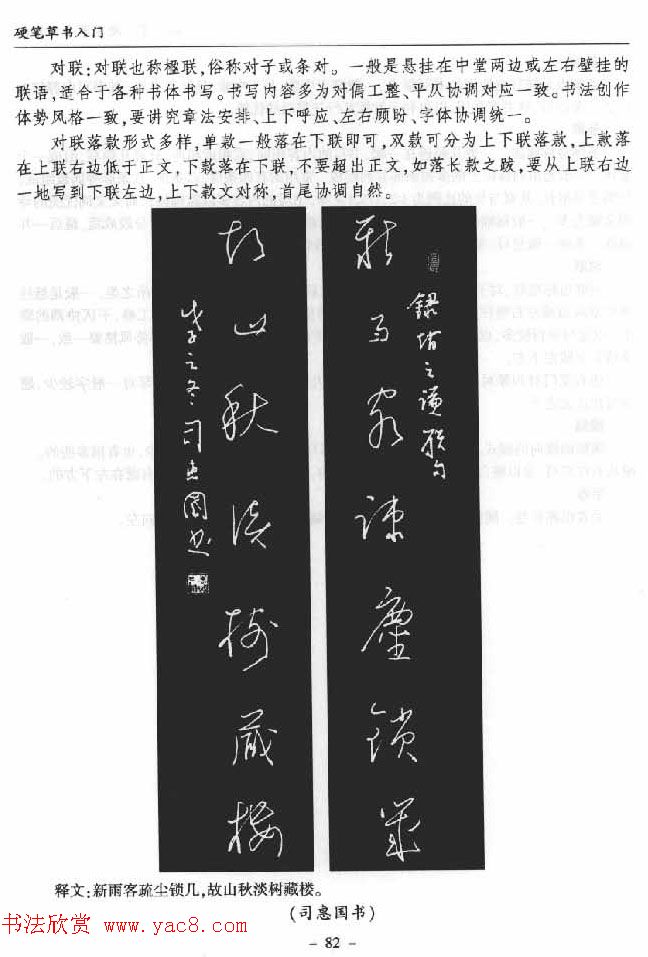 硬笔草书入门
对联:对联也称楹联,俗称对子或条对。一般是悬挂在中堂两边或左右壁挂的
联语,适合于各种书体书写。书写内容多为对偶工整、平仄协调对应一致。书法创作
体势风格一致,要讲究章法安排、上下呼应、左右顾盼、字体协调统一。
对联落款形式多样,单款一般落在下联即可,双款可分为上下联落款,上款落
在上联右边低于正文,下款落在下联,不要超出正文,如落长款之跋,要从上联右边
一地写到下联左边,上下款文对称,首尾协调自然。
录堵之谦联句
新雨客疏尘锁几
故山秋淡树藏楼
戊子之冬司惠国书
释文:新雨客疏尘锁几,故山秋淡树藏楼。
(司惠国书)
书法欣赏 www.yac8.com
- 82 -